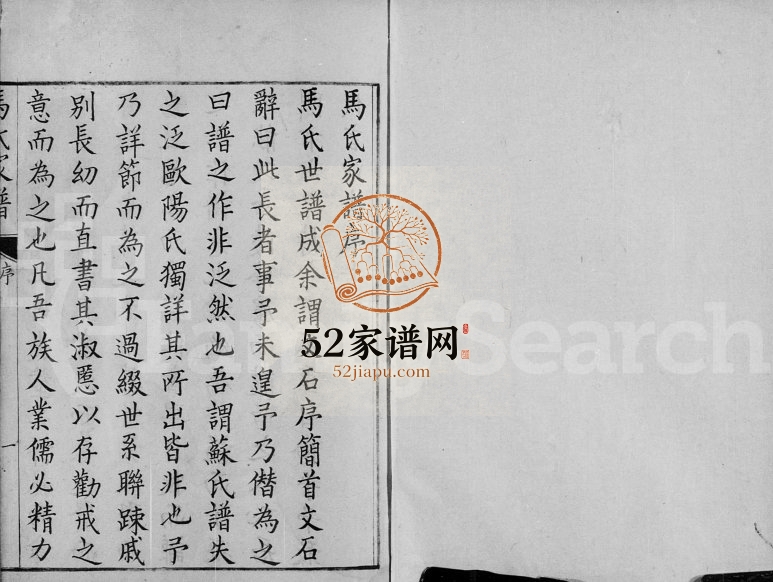 馬氏家譜序
馬氏世譜成余謂文石序簡首文石
辭曰此長者事予未遑予乃僣為之
曰譜之作非泛然也吾謂蘇氏譜失
之泛歐陽氏獨詳其所出皆非也予
乃詳節而為之不過綴世系聯踈戚
别長幼而直書其淑慝以存勸戒之
意而為之也凡吾族人業儒必精力
馬氏家譜
序
一
52家谱网
52jiapu.com
FamilySearch